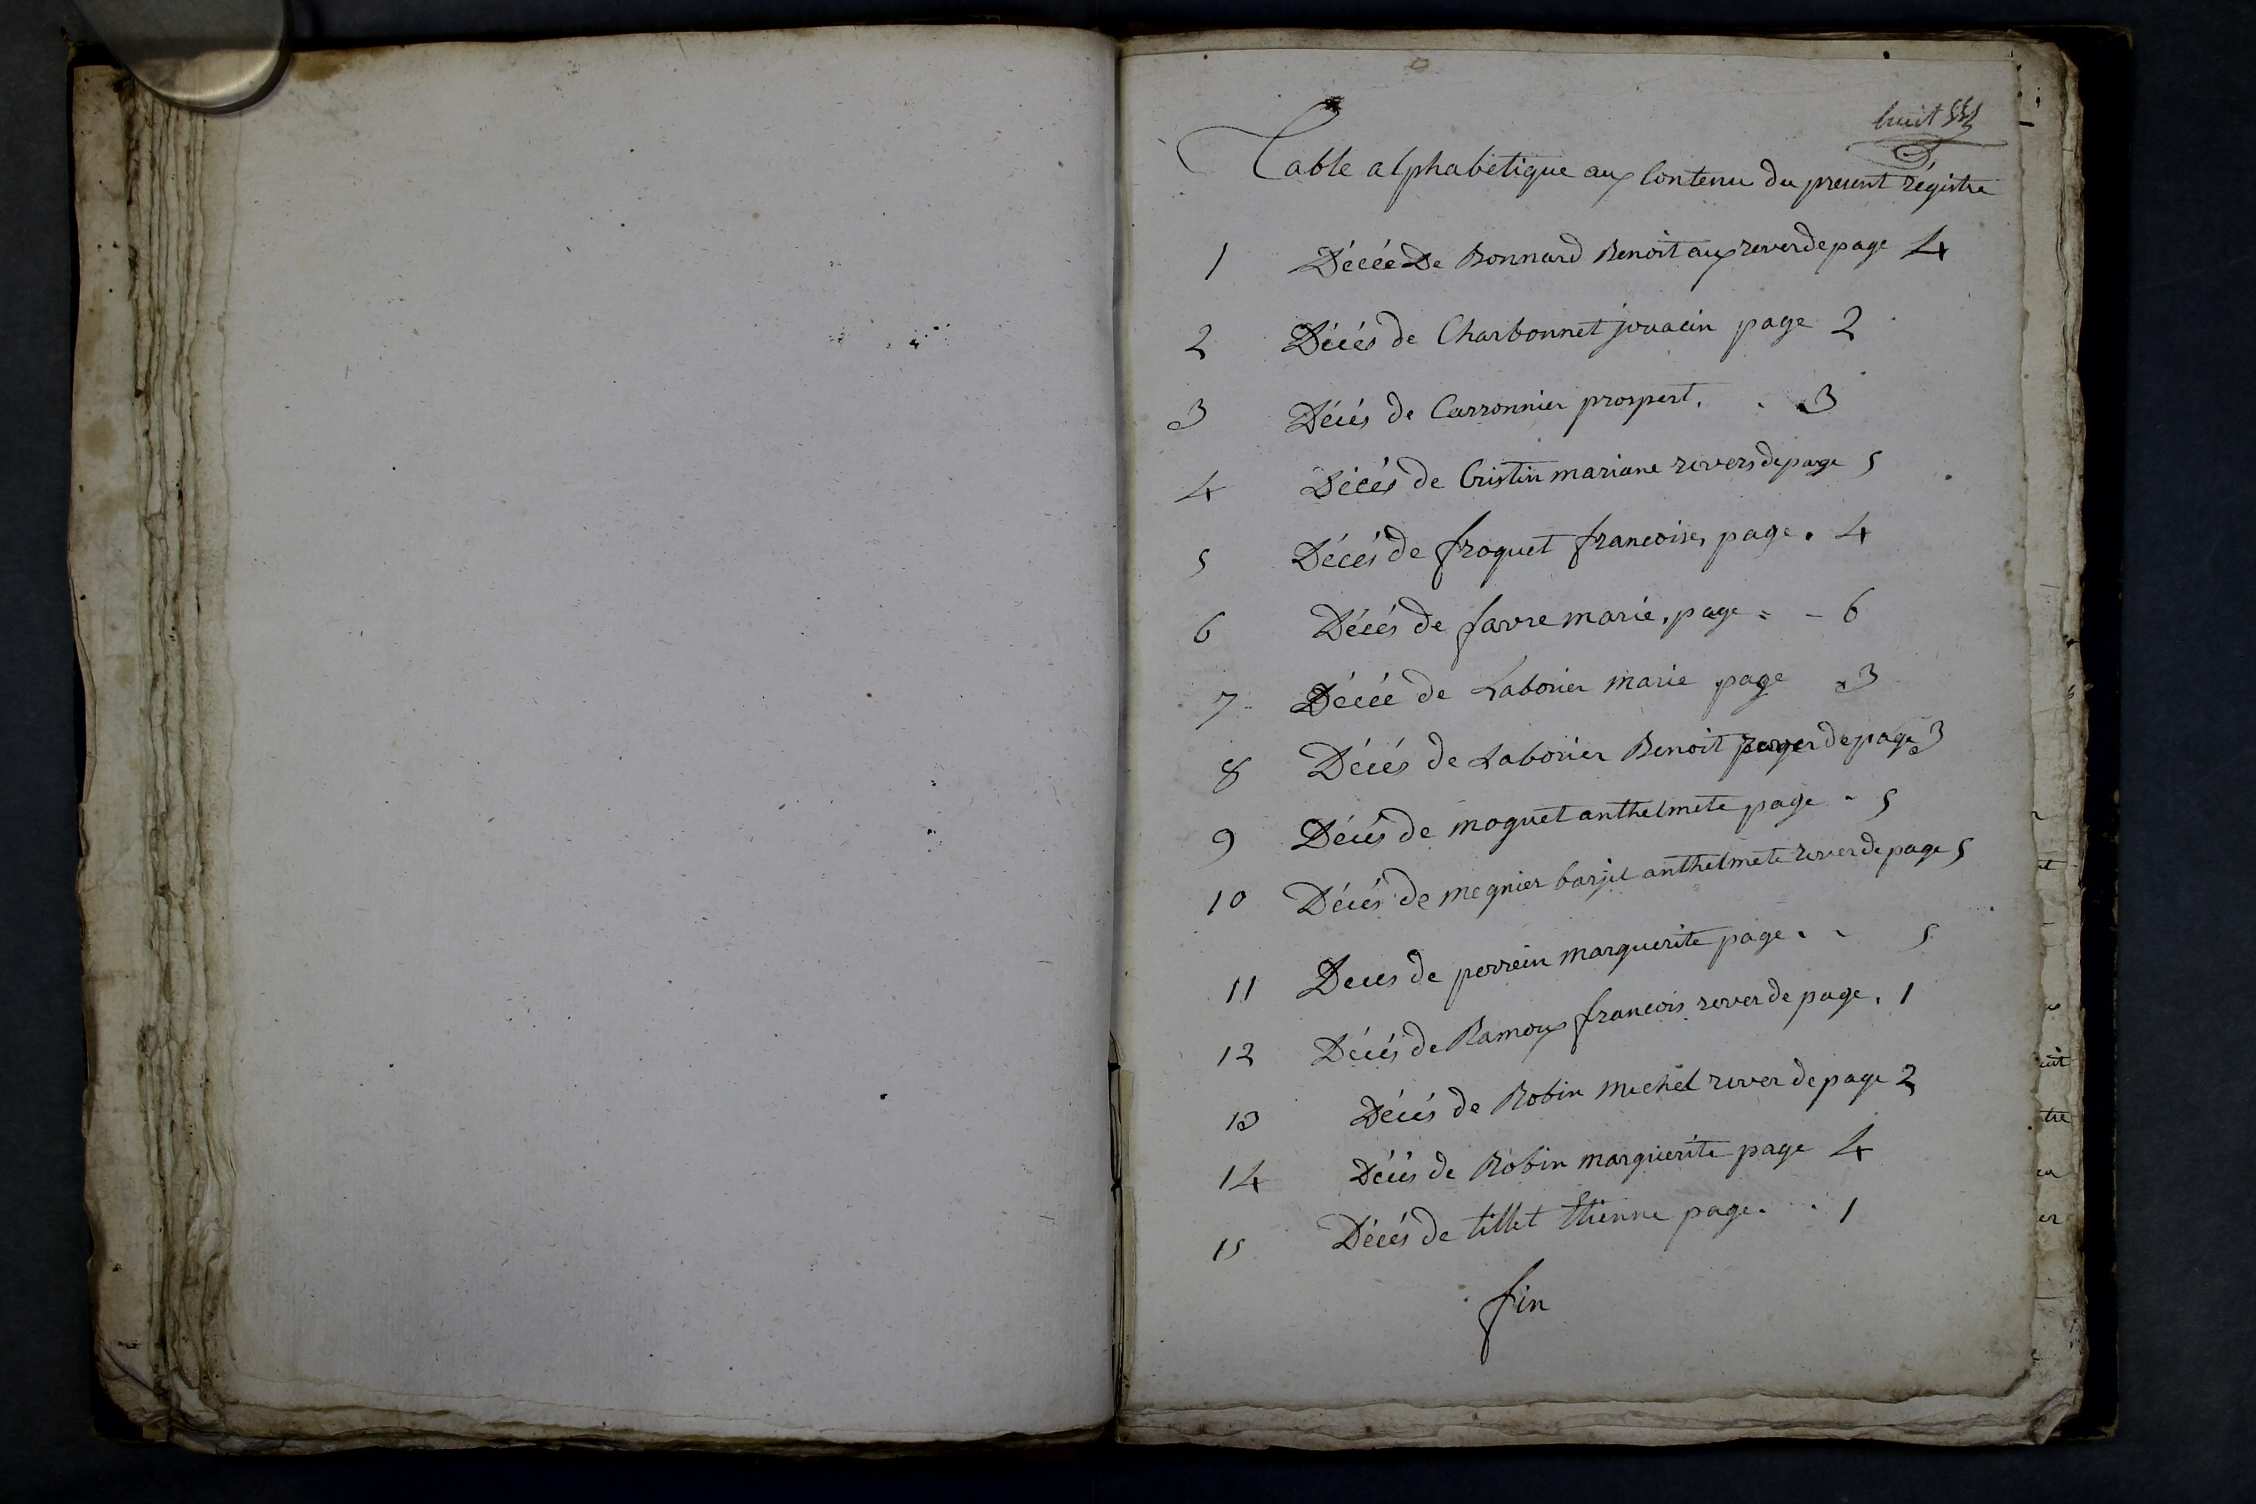 huit
Table alphabetique aux Contenu du present régistre
1 Décée De Bonnard Benoit aux rever de page 4
2 Décés de Charbonnet jouacin page 2
3 Décés de Carronnier prospert. . 3
4 Décés de Cristin mariane revers de page 5
5 Décés de froquet francoise, page . 4
6 Décés de favre marie, page = - 6
7 Décée de Laborier marie page 3
8 Décés de Laborier Benoit rever de page 3
9 Décés de moguet anthelmete page - 5
10 Décés de megnier barjet anthelmete rever de page 5
11 Deces de perrein marguerite page . - 5
12 Décés de Ramoux francois rever de page . 1
13 Décés de Robin Michel rever de page 2
14 Décés de Robin marguerite page 4
15 Décés de tillet Etienne page . . 1
fin